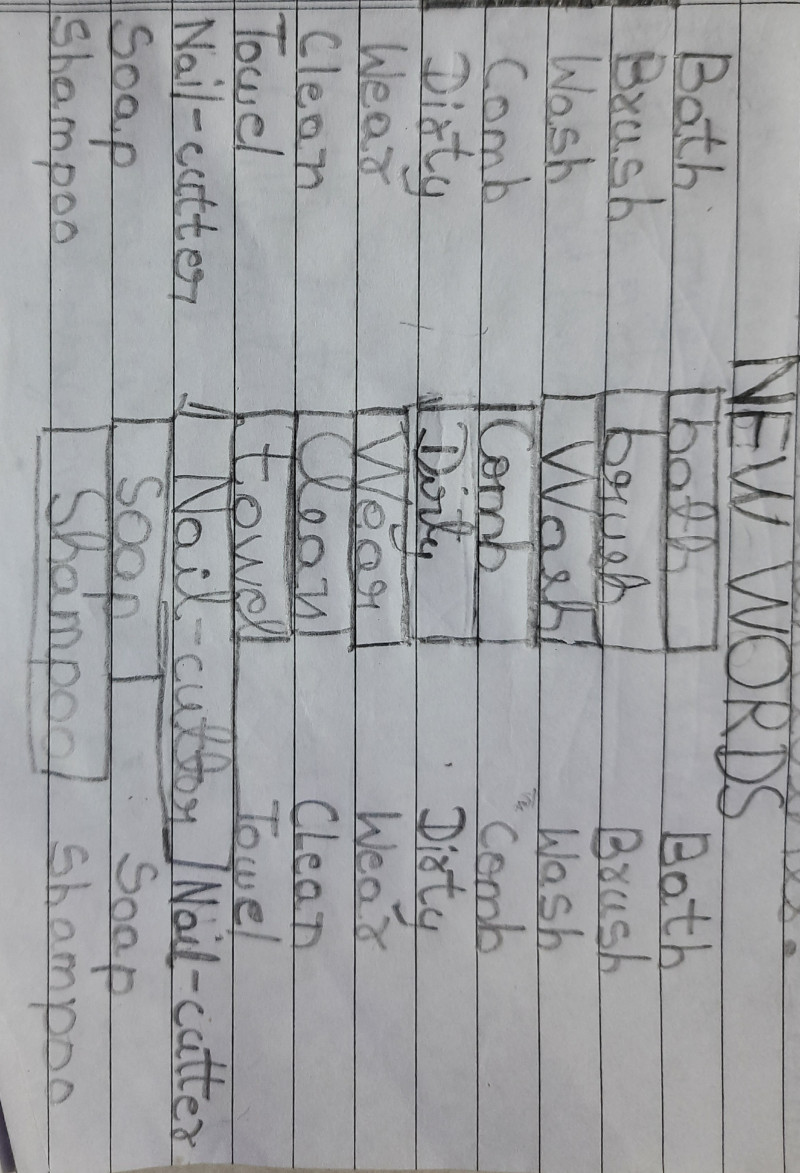 NEW WORDS
Bath bath Bath
Brush brush Brush
Wash Wash Wash
Comb Comb Comb
Dirty Dirty Dirty
Wear Wear Wear
Clean Clean Clean
Towel towel Towel
Nail-cutter Nail-cutter Nail-cutter
Soap Soap Soap
Shampoo Shampoo Shampoo